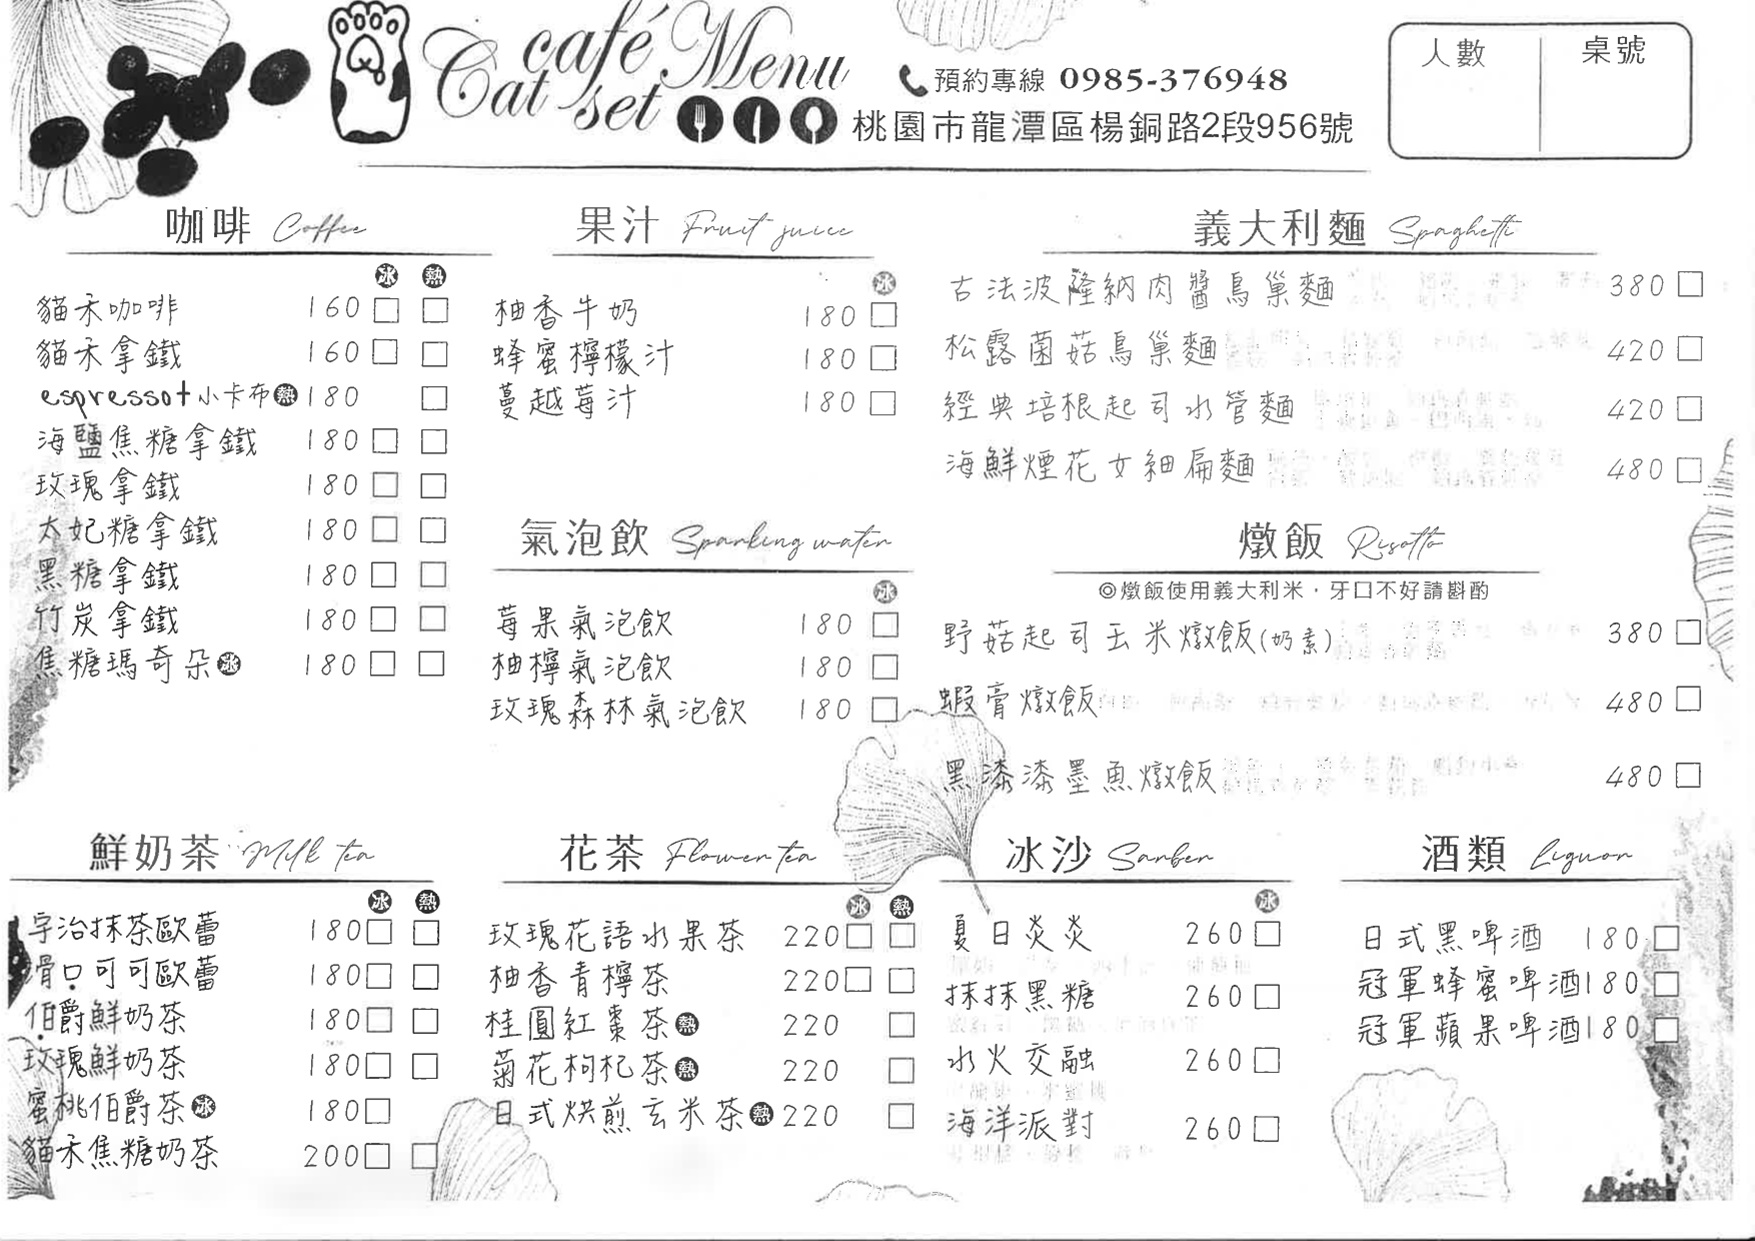 café Menu
Cat set
預約專線 0985-376948
桃園市龍潭區楊銅路2段956號
人數 桌號
咖啡 Coffee
冰 熱
貓禾咖啡 160
貓禾拿鐵 160
espresso+小卡布熱 180
海鹽焦糖拿鐵 180
玫瑰拿鐵 180
太妃糖拿鐵 180
黑糖拿鐵 180
竹炭拿鐵 180
焦糖瑪奇朵冰 180
果汁 Fruit juice
冰
柚香牛奶 180
蜂蜜檸檬汁 180
蔓越莓汁 180
氣泡飲 Sparkling water
冰
莓果氣泡飲 180
柚檸氣泡飲 180
玫瑰森林氣泡飲 180
義大利麵 Spaghetti
古法波隆納肉醬鳥巢麵 380
松露菌菇鳥巢麵 420
經典培根起司水管麵 420
海鮮煙花女細扁麵 480
燉飯 Risotto
◎燉飯使用義大利米，牙口不好請斟酌
野菇起司玉米燉飯(奶素) 380
蝦膏燉飯 480
黑漆漆墨魚燉飯 480
鮮奶茶 Milk tea
冰 熱
宇治抹茶歐蕾 180
滑口可可歐蕾 180
伯爵鮮奶茶 180
玫瑰鮮奶茶 180
蜜桃伯爵茶冰 180
貓禾焦糖奶茶 200
花茶 Flower tea
冰 熱
玫瑰花語水果茶 220
柚香青檸茶 220
桂圓紅棗茶熱 220
菊花枸杞茶熱 220
日式烘煎玄米茶熱 220
冰沙 Sanber
冰
夏日炎炎 260
抹抹黑糖 260
水火交融 260
海洋派對 260
酒類 Liguor
日式黑啤酒 180
冠軍蜂蜜啤酒 180
冠軍蘋果啤酒 180